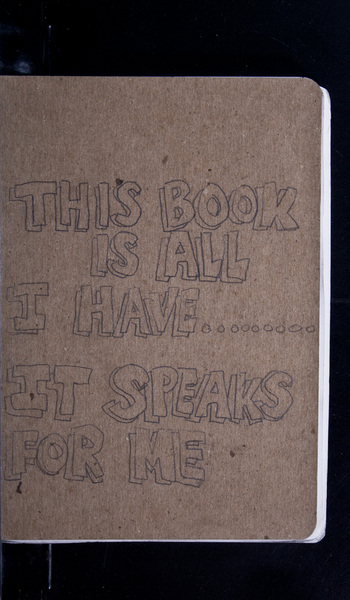 THIS BOOK
IS ALL
I HAVE.........
IT SPEAKS
FOR ME